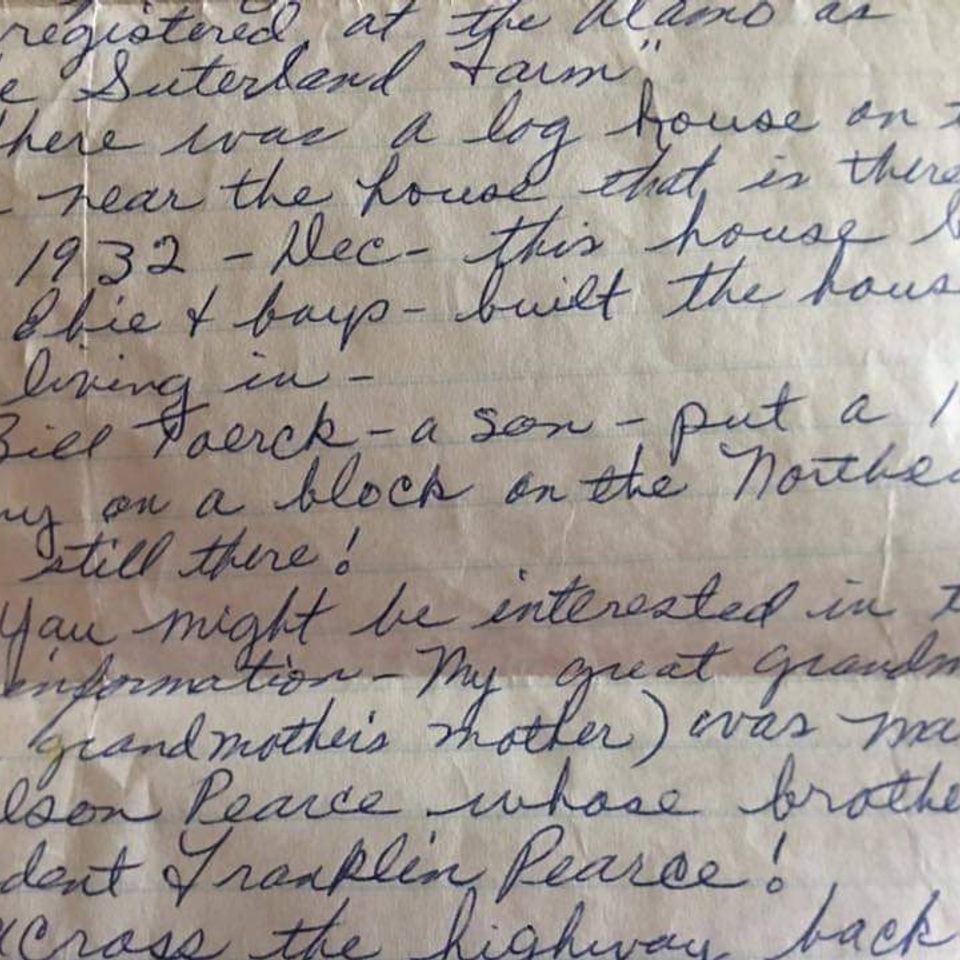 registered at the Alamo as
e Suterland Farm"
here was a log house on t
near the house that is there
1932 - Dec - this house b
Obie & boys - built the hous
living in -
Bill Poerck - a son - put a 1
ny on a block on the Northea
still there!
You might be interested in t
information - My great grandm
grandmother's mother) was ma
lson Pearce whose brothe
dent Franklin Pearce!
across the highway back